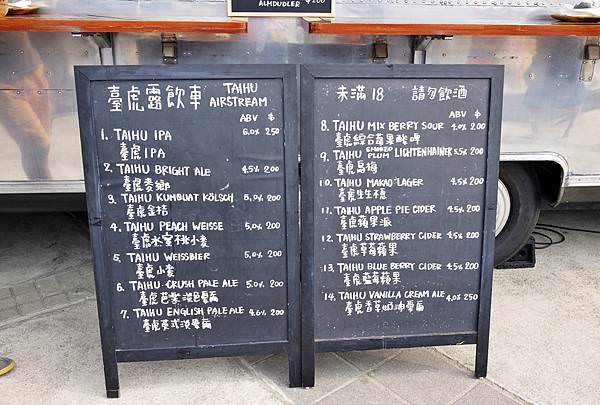 ALMDUDLER
臺虎露飲車 TAIHU AIRSTREAM
ABV $
1. TAIHU IPA 6.0% 250
臺虎IPA
2. TAIHU BRIGHT ALE 4.5% 200
臺虎麥鄉
3. TAIHU KUMBUAT KÖLSCH 5.0% 200
臺虎金桔
4. TAIHU PEACH WEISSE 5.0% 200
臺虎水蜜桃小麥
5. TAIHU WEISSBIER 5.0% 200
臺虎小麥
6. TAIHU CRUSH PALE ALE 5.0% 200
臺虎芭樂淡色艾爾
7. TAIHU ENGLISH PALE ALE 4.6% 200
臺虎英式淡色艾爾
未滿18 請勿飲酒
ABV $
8. TAIHU MIX BERRY SOUR 4.0% 200
臺虎綜合莓果酸啤
9. TAIHU SMOKED PLUM LICHTENHAINER 3.5% 200
臺虎烏梅
10. TAIHU MAKAO LAGER 4.5% 200
臺虎生生不息
11. TAIHU APPLE PIE CIDER 4.5% 200
臺虎蘋果派
12. TAIHU STRAWBERRY CIDER 4.5% 200
臺虎草莓蘋果
13. TAIHU BLUE BERRY CIDER 4.5% 200
臺虎藍莓蘋果
14. TAIHU VANILLA CREAM ALE 4.0% 250
臺虎香草奶油艾爾